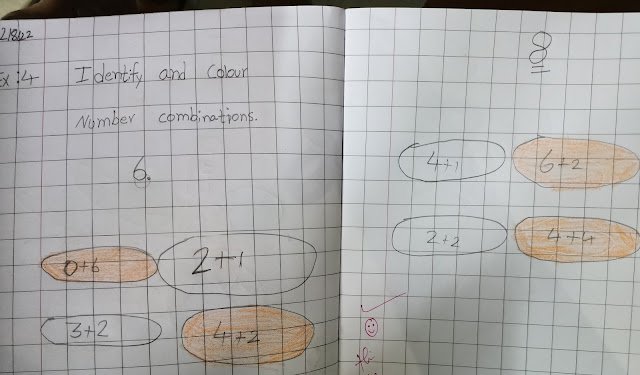 Ex:4 Identify and Colour
Number combinations.
6.
0+6 2+1
3+2 4+2
8
4+1 6+2
2+2 4+4